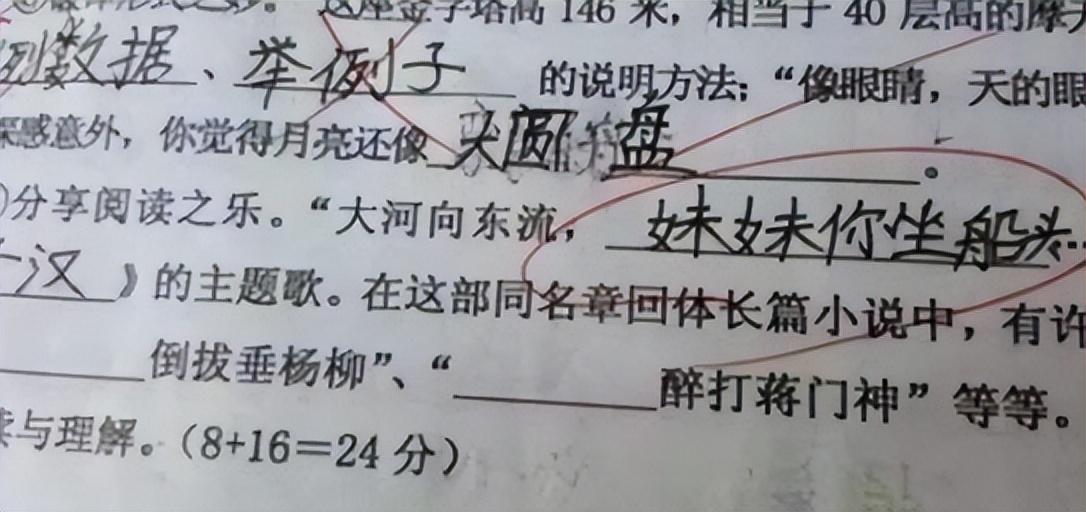 这座金字塔高 146 米，相当于 40 层高的摩天
列数据、举例子 的说明方法；“像眼睛，天的眼
深感意外，你觉得月亮还像 大圆盘 。
)分享阅读之乐。“大河向东流，妹妹你坐船头…
汉 》的主题歌。在这部同名章回体长篇小说中，有许
倒拔垂杨柳”、“ 醉打蒋门神” 等等。
读与理解。（8+16＝24 分）